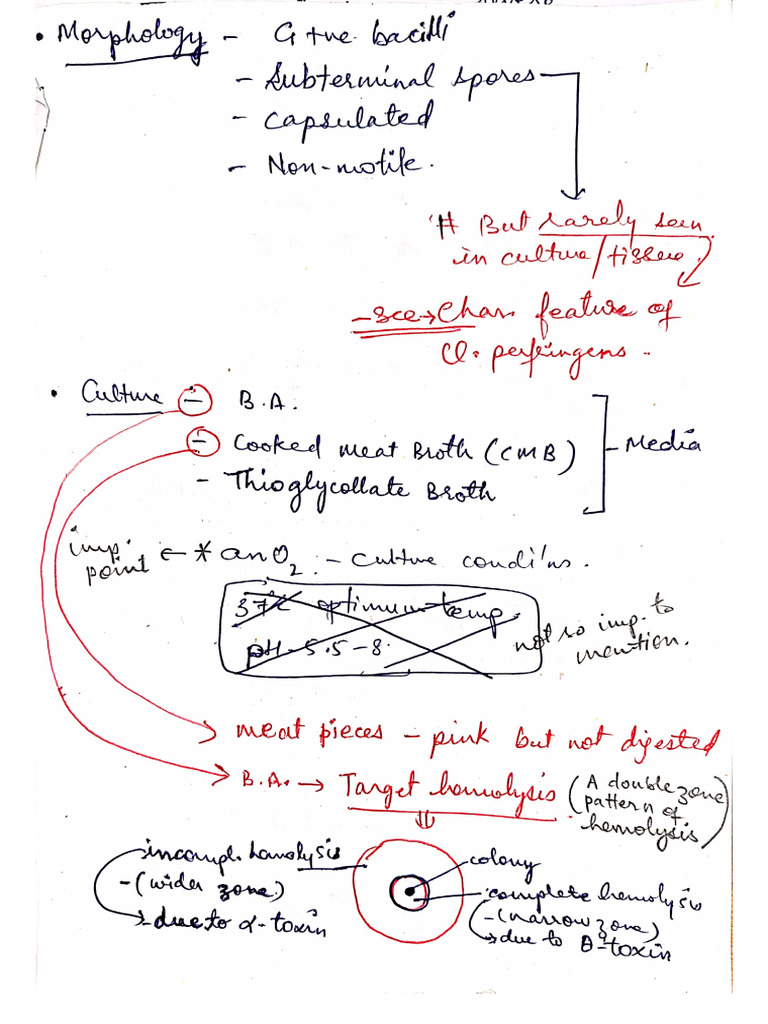 • Morphology - G +ve bacilli
- Subterminal spores
- Capsulated
- Non-motile.
# But rarely seen
in culture/tissue.
- see → Char. feature of
Cl. perfringens.
• Culture - B.A.
- Cooked meat Broth (CMB)
- Thioglycollate Broth
- Media
imp. point ← * anO2 :- culture condi'ns.
37°C optimum temp.
pH - 5.5 - 8.
not so imp. to
mention.
meat pieces - pink but not digested
B.A. → Target hemolysis (A double zone
pattern of
hemolysis)
incompl. hemolysis
- (wider zone)
→ due to α-toxin
colony
complete hemolysis
- (narrow zone)
→ due to θ-toxin